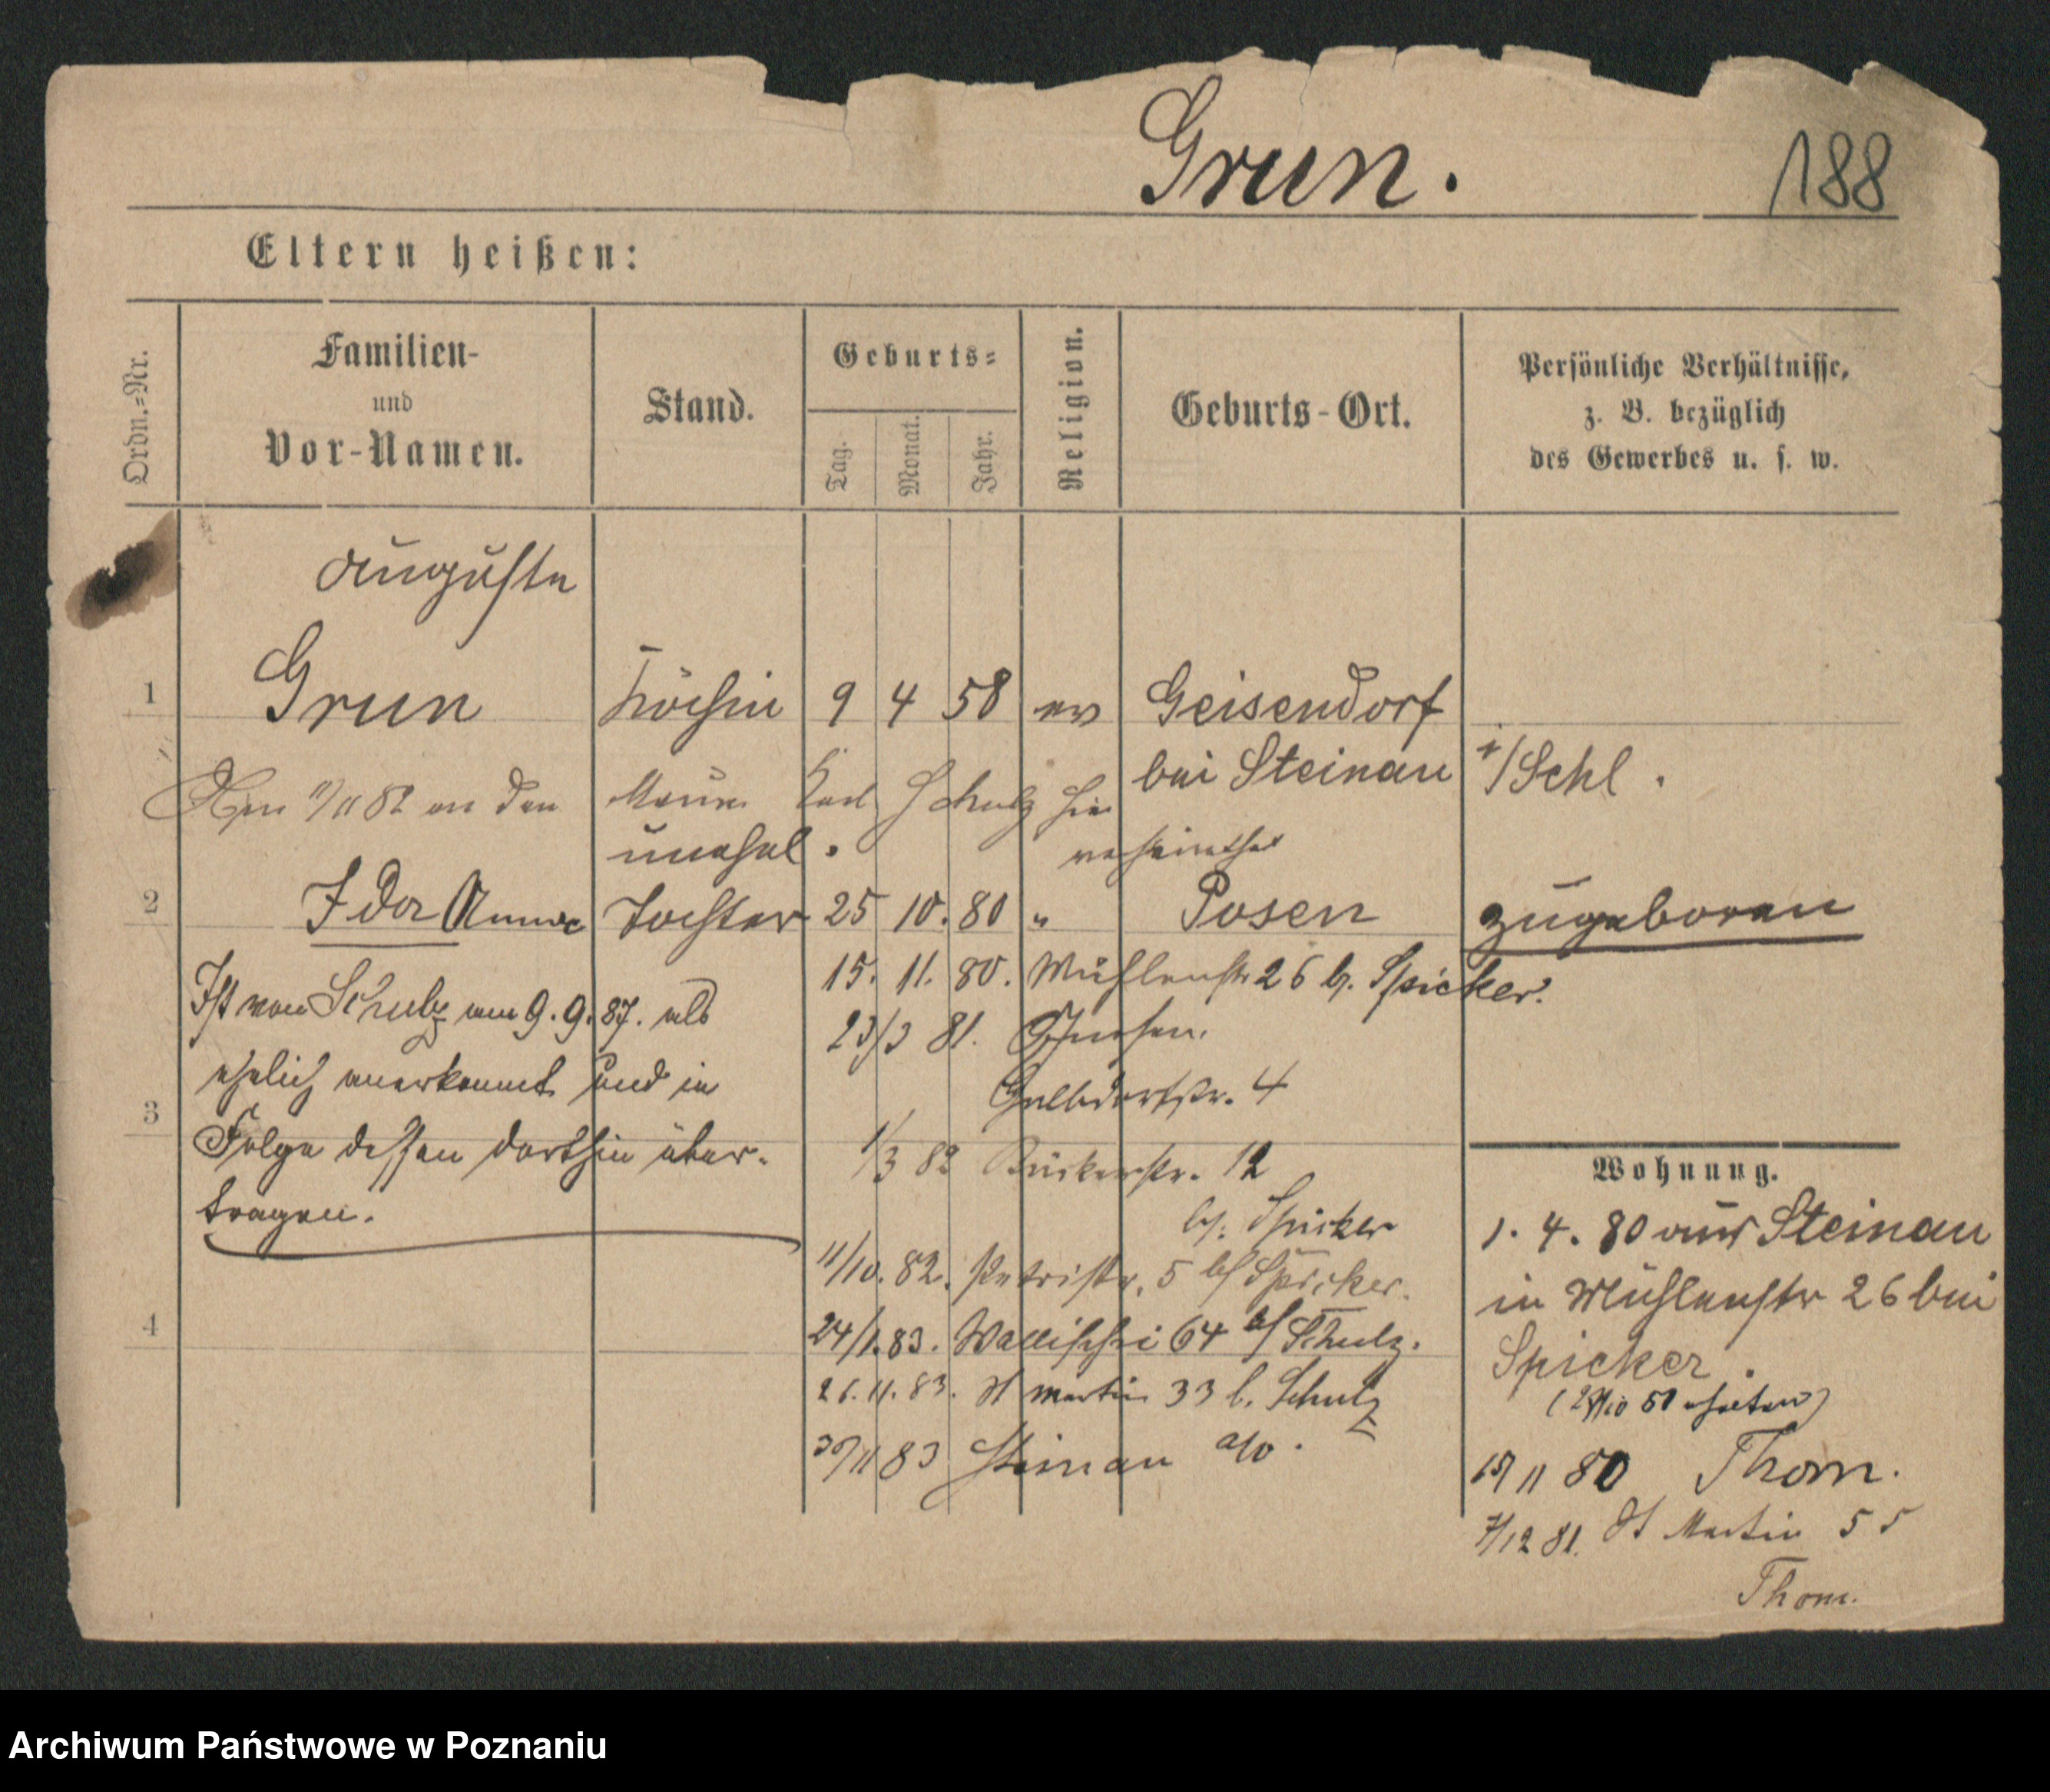 Grun.
188
Eltern heißen:
Ordn.=Nr.
Familien-
und
Vor-Namen.
Stand.
Geburts=
Tag.
Monat.
Jahr.
Religion.
Geburts-Ort.
Persönliche Verhältnisse,
z. B. bezüglich
des Gewerbes u. s. w.
Auguste
1 Grun Köchin 9 4 58 ev Geisendorf
bei Steinau i/Schl.
11/11 82 an den Maurer Karl Schulz hier
verheirathet
unehel.
2 Ida Anna Tochter 25 10. 80 " Posen zugeboren
15. 11. 80. Mühlenstr 26 b. Spicker.
Ist von Schulz am 9. 9. 87. als
ehelich anerkannt und in
3 Folge dessen dorthin über-
tragen.
23/3 81. Gnesen.
4
1/3 82 Bäckerstr. 12
b. Spicker
11/10. 82. Petristr. 5 b/ Spicker.
4
24/1.83. Wallischei 64 b/ Schulz.
26. 11. 83. St Martin 33 b. Schulz
30/11 83 Steinau a/o.
Wohnung.
1. 4. 80 aus Steinau
in Mühlenstr 26 bei
Spicker.
15/11 80 Thorn.
7/12 81. St Martin 55
Thom.
Archiwum Państwowe w Poznaniu